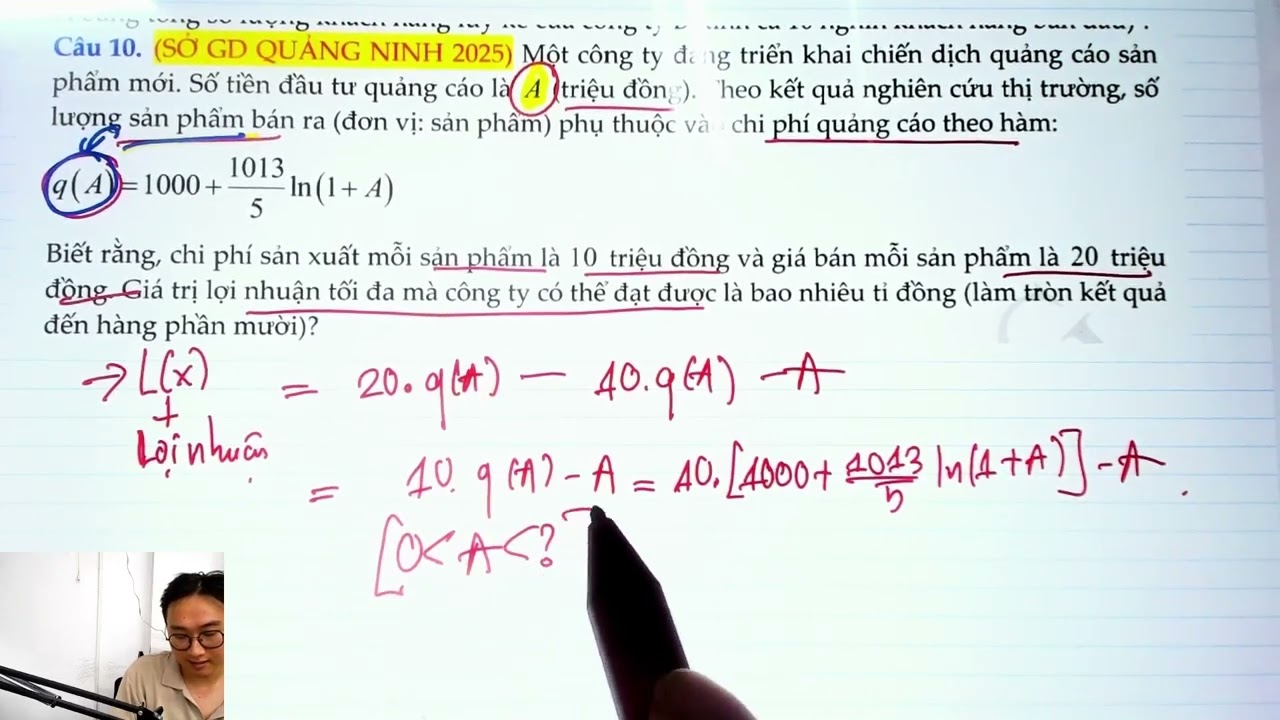 Câu 10. (SỞ GD QUẢNG NINH 2025) Một công ty đang triển khai chiến dịch quảng cáo sản
phẩm mới. Số tiền đầu tư quảng cáo là A (triệu đồng). Theo kết quả nghiên cứu thị trường, số
lượng sản phẩm bán ra (đơn vị: sản phẩm) phụ thuộc và chi phí quảng cáo theo hàm:
q(A) = 1000 + 1013/5 ln(1 + A)
Biết rằng, chi phí sản xuất mỗi sản phẩm là 10 triệu đồng và giá bán mỗi sản phẩm là 20 triệu
đồng. Giá trị lợi nhuận tối đa mà công ty có thể đạt được là bao nhiêu tỉ đồng (làm tròn kết quả
đến hàng phần mười)?
→ L(x) = 20.q(A) - 10.q(A) - A
↓
Lợi nhuận
= 10.q(A) - A = 10.[1000 + 1013/5 ln(1+A)] - A.
[0 < A < ?